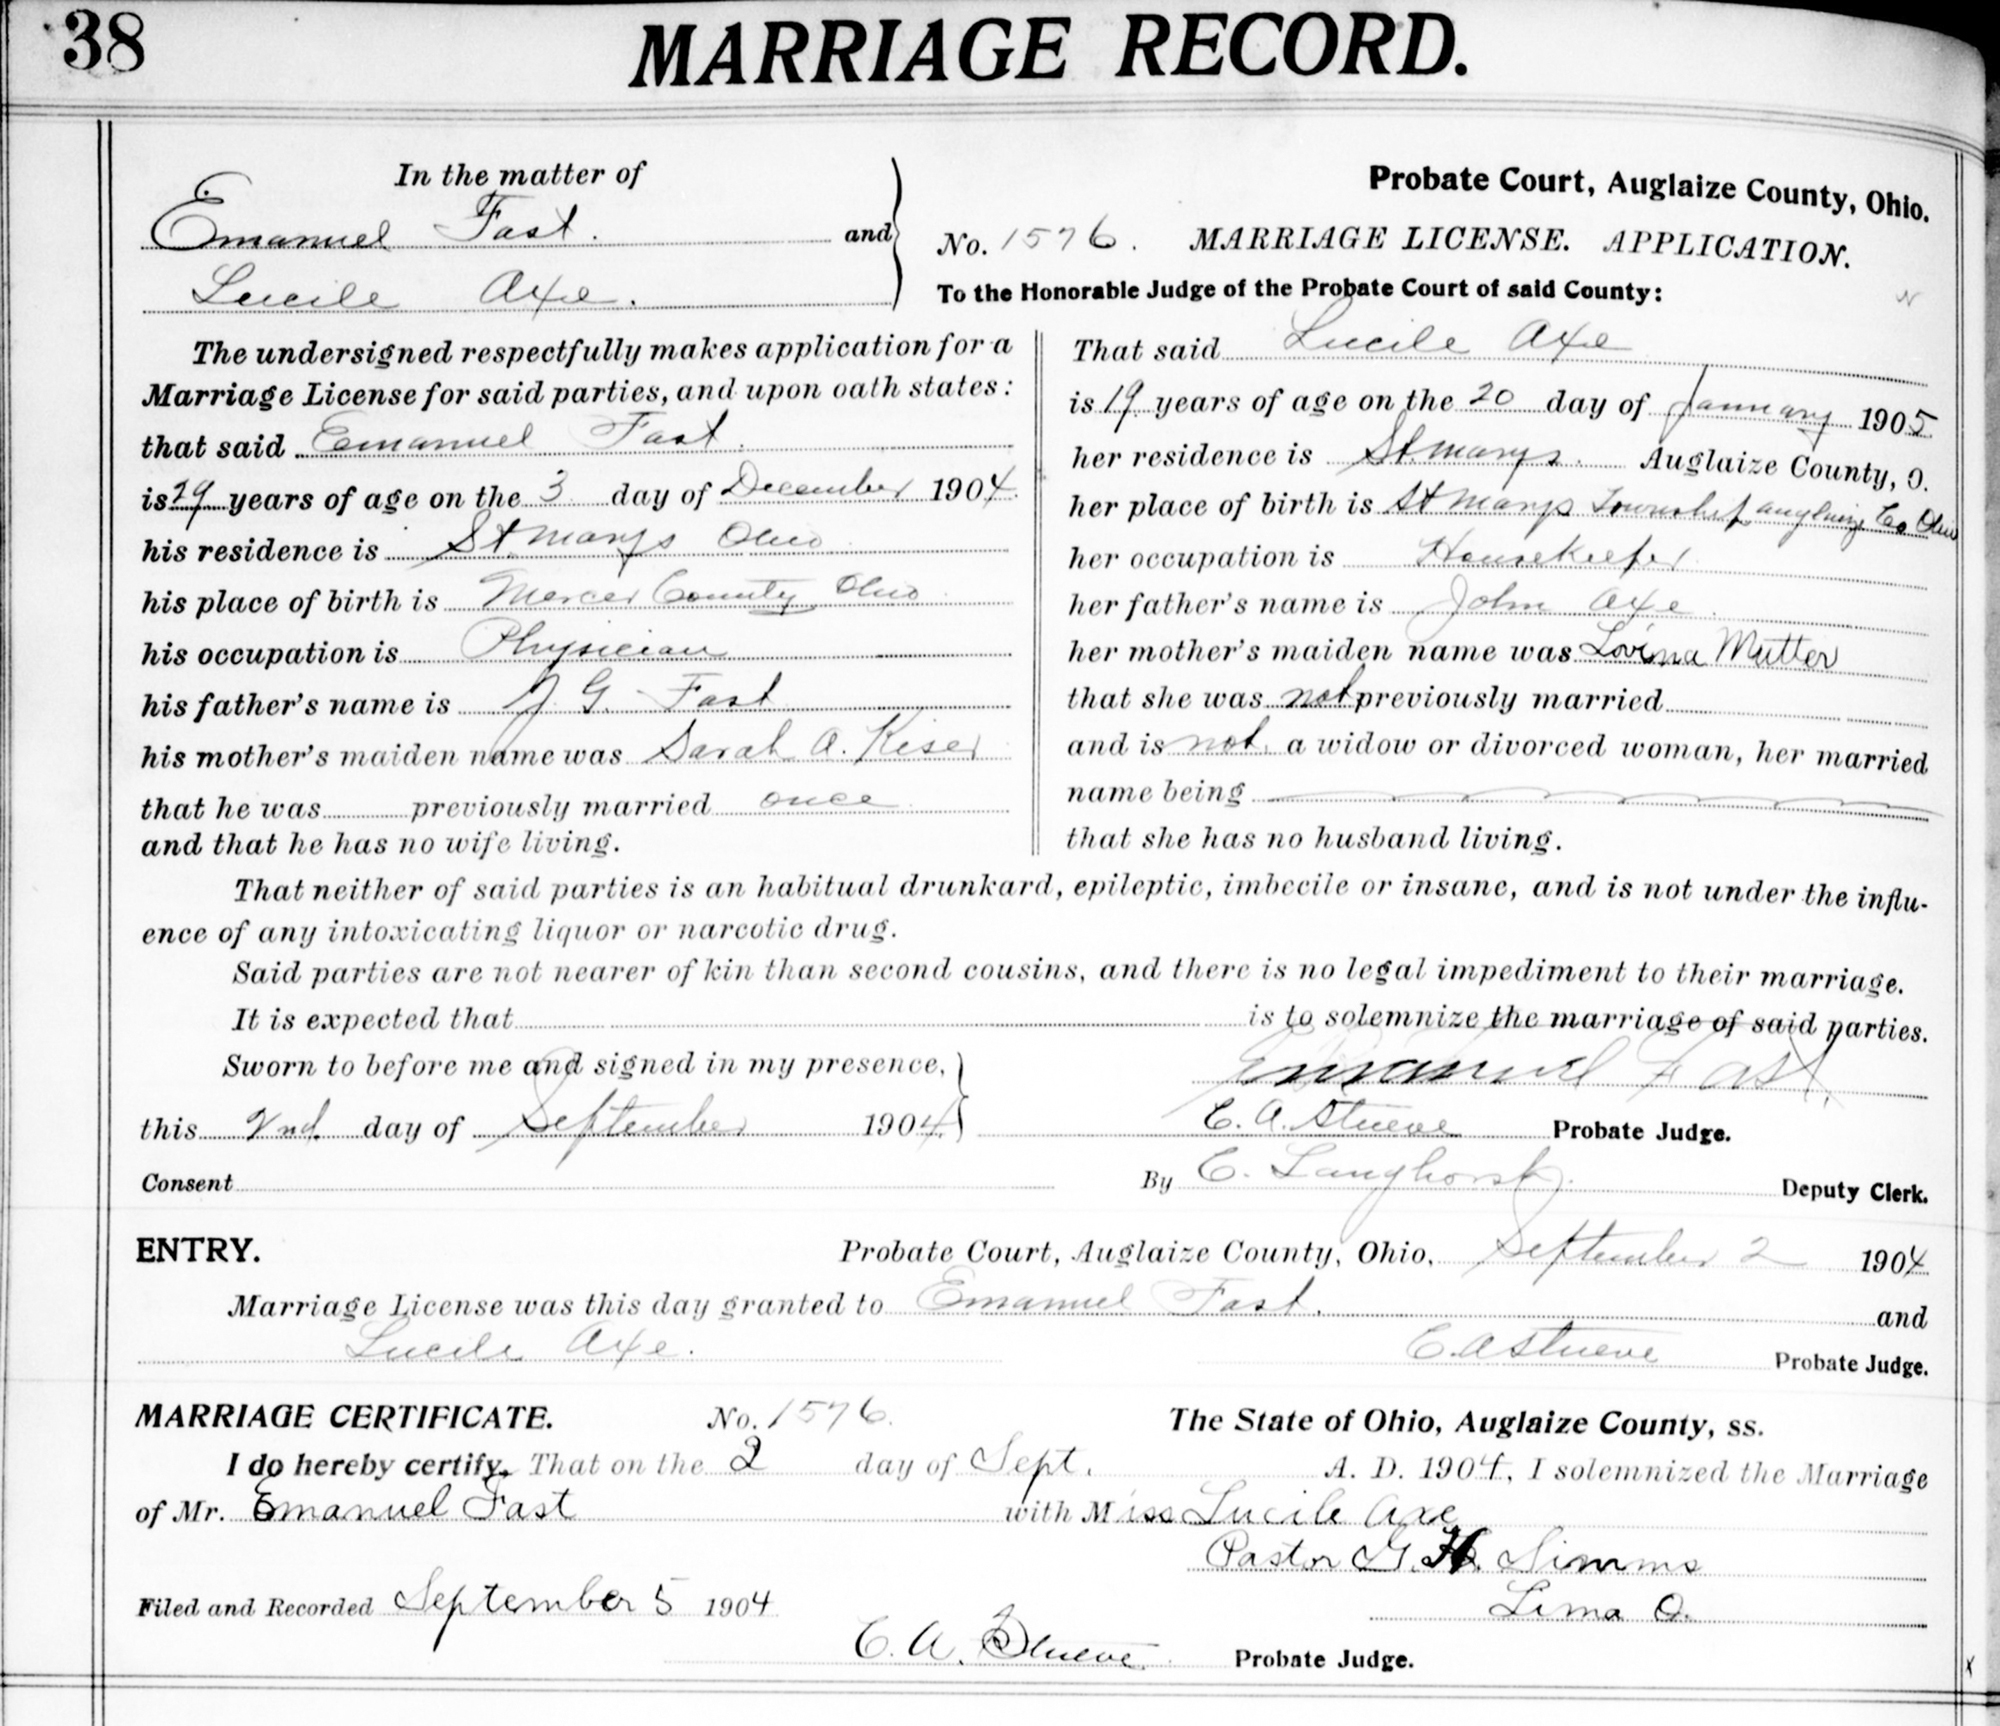 38
MARRIAGE RECORD.
In the matter of
Emanuel Fast. and
Lucile Axe.
Probate Court, Auglaize County, Ohio.
No. 1576. MARRIAGE LICENSE. APPLICATION.
To the Honorable Judge of the Probate Court of said County:
The undersigned respectfully makes application for a
Marriage License for said parties, and upon oath states:
that said Emanuel Fast.
is 29 years of age on the 3 day of December 1904.
his residence is St Marys Ohio
his place of birth is Mercer County Ohio
his occupation is Physician
his father's name is J. G. Fast
his mother's maiden name was Sarah A. Kiser
that he was previously married once
and that he has no wife living.
That said Lucile Axe
is 19 years of age on the 20 day of January 1905
her residence is St. Marys. Auglaize County, O.
her place of birth is St Marys Township Auglaize Co Ohio
her occupation is Housekeeper
her father's name is John Axe.
her mother's maiden name was Lovina Mutter
that she was not previously married
and is not a widow or divorced woman, her married
name being
that she has no husband living.
That neither of said parties is an habitual drunkard, epileptic, imbecile or insane, and is not under the influ-
ence of any intoxicating liquor or narcotic drug.
Said parties are not nearer of kin than second cousins, and there is no legal impediment to their marriage.
It is expected that is to solemnize the marriage of said parties.
Sworn to before me and signed in my presence, Emanuel Fast.
this 2nd. day of September 1904. C. A. Stueve Probate Judge.
Consent By C. Langhorst Deputy Clerk.
ENTRY. Probate Court, Auglaize County, Ohio, September 2 1904
Marriage License was this day granted to Emanuel Fast. and
Lucile Axe. C. A Stueve Probate Judge.
MARRIAGE CERTIFICATE. No. 1576. The State of Ohio, Auglaize County, ss.
I do hereby certify, That on the 2 day of Sept. A. D. 1904, I solemnized the Marriage
of Mr. Emanuel Fast with Miss Lucile Axe
Pastor G. H. Simms
Filed and Recorded September 5 1904 Lima O.
C. A. Stueve Probate Judge.